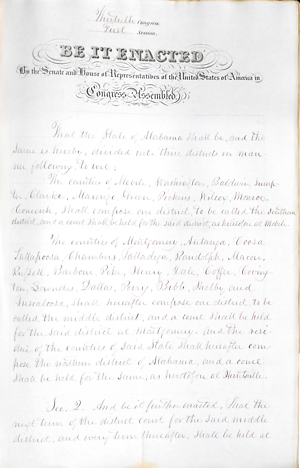 Thirtieth Congress
First Session.
BE IT ENACTED
By the Senate and House of Representatives of the United States of America in
Congress Assembled,
That the State of Alabama shall be, and the
same is hereby, divided into three districts in man
ner following to wit:
The counties of Mobile, Washington, Baldwin, Sump-
ter, Clarke, Marengo, Green, Pickens, Wilcox, Monroe,
Conecuh, shall compose one district to be called the Southern
district, and a court shall be held for the said district, as heretofore at Mobile.
The counties of Montgomery, Autauga, Coosa,
Tallapoosa, Chambers, Talladega, Randolph, Macon,
Russell, Barbour, Pike, Henry, Dale, Coffee, Coving-
ton, Lowndes, Dallas, Perry, Bibb, Shelby and
Tuscaloosa, shall hereafter compose one district, to be
called the middle district, and a court shall be held
for the said district at Montgomery. And the resi-
due of the counties of said State shall hereafter com
pose the northern district of Alabama, and a court
shall be held for the same, as heretofore at Huntsville.
Sec. 2. And be it further enacted, That the
next term of the district court for the said middle
district, and every term thereafter, shall be held at